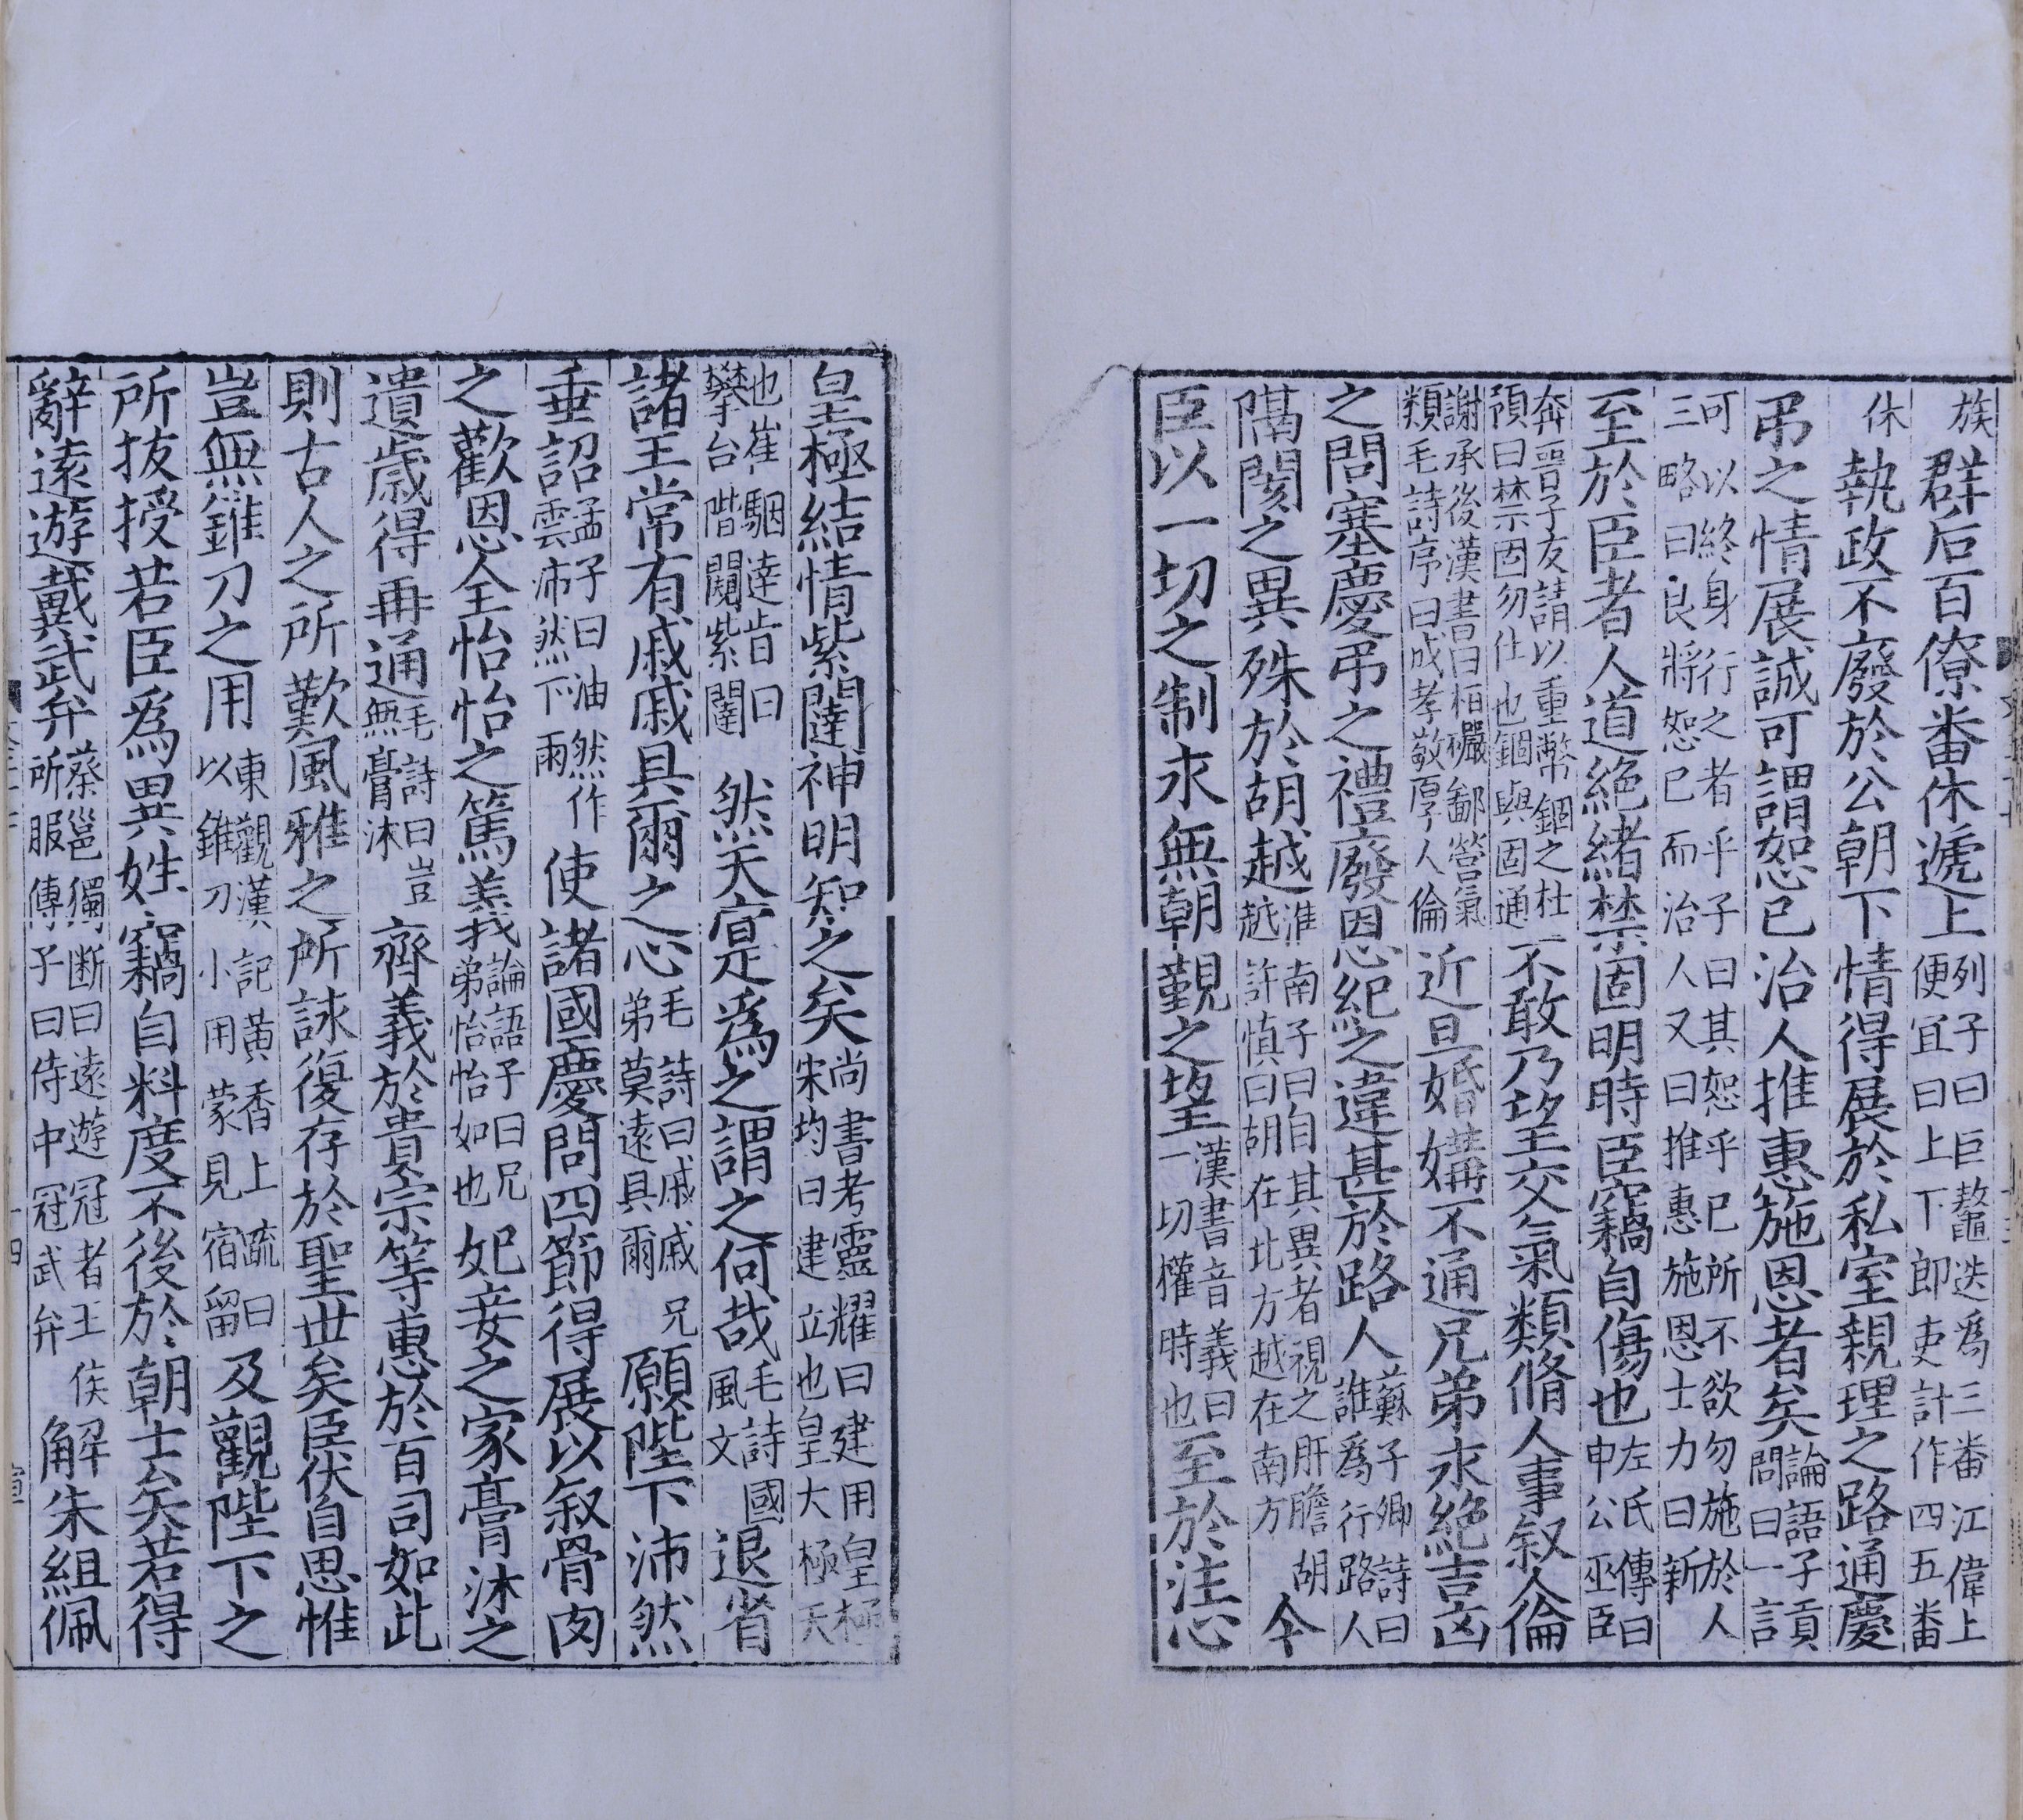 族群后百僚番休遞上列子曰巨鼇迭為三番江偉上便宜曰上下郎吏計作四五番
休執政不廢於公朝下情得展於私室親理之路通慶
弔之情展誠可謂恕己治人推惠施恩者矣論語子貢問曰一言
可以終身行之者乎子曰其恕乎己所不欲勿施於人三略曰良將恕己而治人又曰推惠施恩士力曰新
至於臣者人道絕緒禁固明時臣竊自傷也左氏傳曰申公巫臣
奔晉子友請以重幣錮之杜預曰禁固勿仕也錮與固通不敢乃望交氣類脩人事叙人倫
謝承後漢書曰栢礹鄙營氣類毛詩序曰成孝敬厚人倫近且婚媾不通兄弟永絕吉凶
之問塞慶弔之禮廢恩紀之違甚於路人蘇子卿詩曰誰爲行路人
隔閡之異殊於胡越淮南子曰自其異者視之肝膽胡越許慎曰胡在北方越在南方今
臣以一切之制永無朝覲之望漢書音義曰一切權時也至於注心
皇極結情紫闥神明知之矣尚書考靈耀曰建用皇極宋均曰建立也皇大極天
也崔駰達旨曰攀台階闚紫闥然天寔爲之謂之何哉毛詩國風文退省
諸王常有戚戚具爾之心毛詩曰戚戚兄弟莫遠具爾願陛下沛然
垂詔孟子曰油然作雲沛然下雨使諸國慶問四節得展以叙骨肉
之歡恩全怡怡之篤義論語子曰兄弟怡怡如也妃妾之家膏沐之
遺歲得再通毛詩曰豈無膏沐齊義於貴宗等惠於百司如此
則古人之所歎風雅之所詠復存於聖世矣臣伏自思惟
豈無錐刀之用東觀漢記黃香上疏曰以錐刀小用蒙見宿留及觀陛下之
所拔授若臣爲異姓竊自料度不後於朝士矣若得
辭遠遊戴武弁蔡邕獨斷曰遠遊冠者王侯所服傅子曰侍中冠武弁解朱組佩